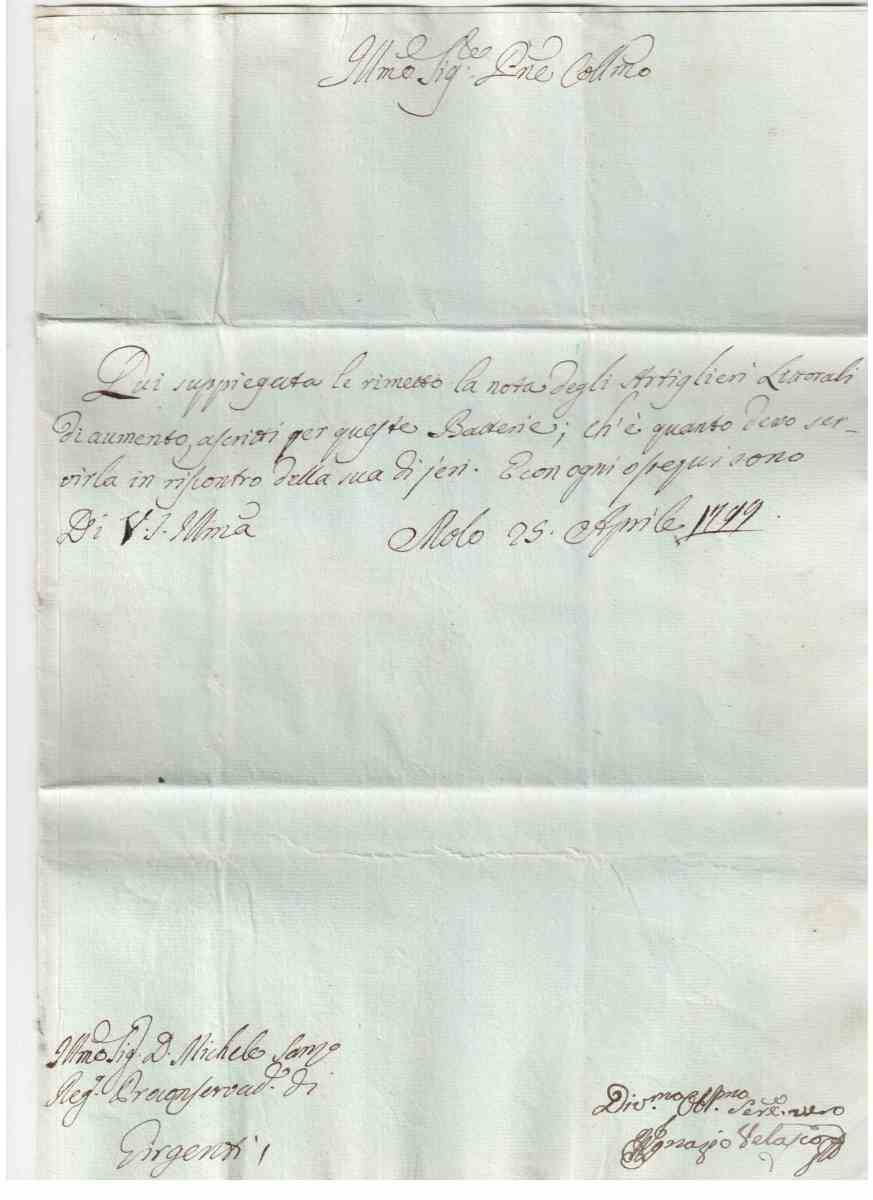 Illmo Sigre Pne Collmo
Qui suppiegata le rimetto la nota degli Artiglieri Littorali
di aumento, ascritti per queste Batterie; ch'è quanto devo ser-
virla in riscontro della sua di jeri. E con ogni ossequi sono
Di V. S. Illma Molo 25. Aprile 1799.
Illmo Sig. D. Michele Sanzo
Reg. Proconservad. di
Girgenti,
Div.mo Obl.mo Serv. vero
Ignazio Velasco